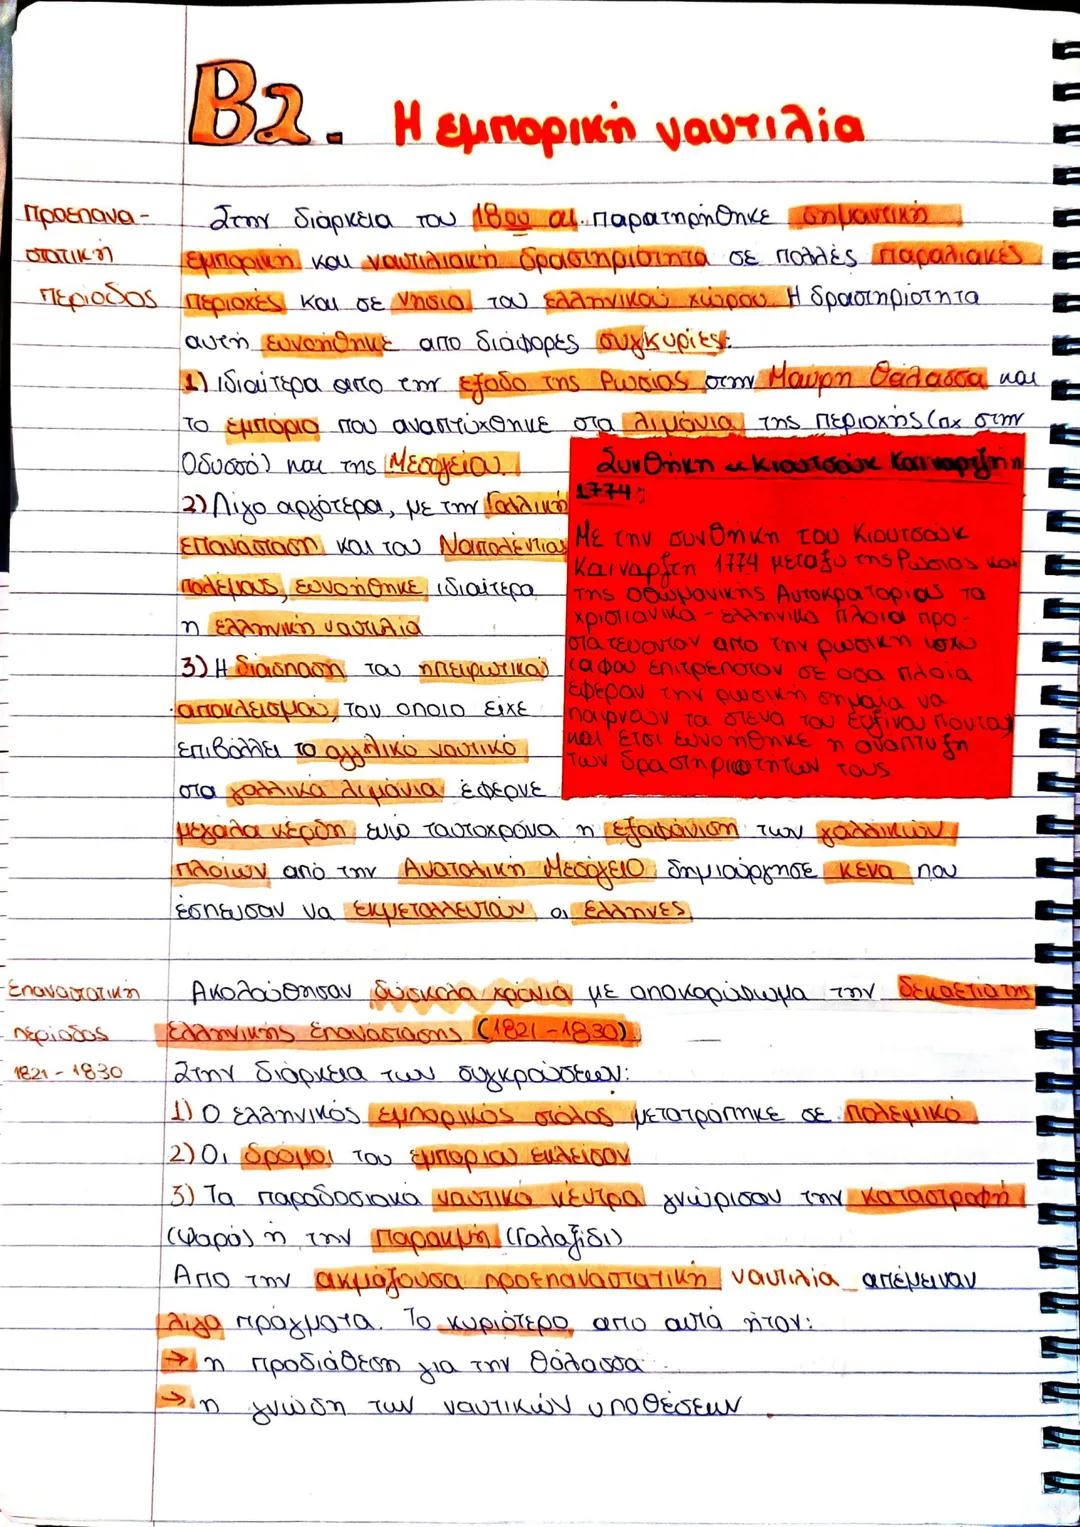 B2. Η εμπορική ναυτιλία
Προεπανα-
στατική
περίοδος
Στην διάρκεια του 18ου αι. παρατηρήθηκε σημαντική
εμπορική και ναυτιλιακή δραστηριότητα σε πολλές παραλιακές
περιοχές και σε νησιά του ελληνικού χώρου. Η δραστηριότητα
αυτή ευνοήθηκε από διάφορες συγκυρίες:
1) ιδιαίτερα απο την έξοδο της Ρωσίας στην Μαύρη Θάλασσα και
το εμπόριο που αναπτύχθηκε στα λιμάνια της περιοχής (πχ στην
Οδυσσό) και της Μεσογείου.
2) Λίγο αργότερα, με την Γαλλική
επανάσταση και του Ναπολέντιους
πολέμους, ευνοήθηκε ιδιαίτερα
η ελληνική ναυτιλία
3) Η διάσπαση του ηπειρωτικού
αποκλεισμού, του οποιο είχε
επιβάλλει το αγγλικό ναυτικό
στα γαλλικά λιμάνια έφερνε
μεγάλα κέρδη ενώ ταυτοχρόνα η εξαφάνιση των γαλλικών
πλοίων από την Ανατολική Μεσόγειο δημιούργησε κενά που
έσπευσαν να εκμεταλλευτούν οι Έλληνες
Συνθήκη Κιουτσούκ Καιναρτζή
1774:
Με την συνθήκη του Κιουτσούκ
Καιναρτζή 1774 μεταξύ της Ρωσίας και
της οθωμανικής Αυτοκρατορίας τα
χριστιανικά - ελληνικά πλοία προ-
στατεύονταν από την ρωσική ισχύ
(αφού επιτρεπόταν σε οσα πλοία
έφεραν την ρωσική σημαία να
παιρνούν τα στενά του Ευξίνου Πόντου)
και έτσι ευνοήθηκε η ανάπτυξη
των δραστηριοτήτων τους
Επαναστατική
περίοδος
1821 - 1830
Ακολούθησαν δύσκολα χρόνια με αποκορύφωμα την δεκαετία της
Ελληνικής Επανάστασης (1821 - 1830).
Στην διάρκεια των συγκρούσεων:
1) Ο ελληνικός εμπορικός στόλος μετατράπηκε σε πολεμικό
2) Οι δρόμοι του εμπορίου έκλεισαν
3) Τα παραδοσιακά ναυτικά κέντρα γνώρισαν την καταστροφή
(Ψαρά) ή την παρακμή (Γαλαξίδι)
Από την ακμάζουσα προεπαναστατική ναυτιλία απέμειναν
λίγα πράγματα. Το κυριότερο απο αυτά ήταν:
→ η προδιάθεση για την θάλασσα
→ η γνώση των ναυτικών υποθέσεων.